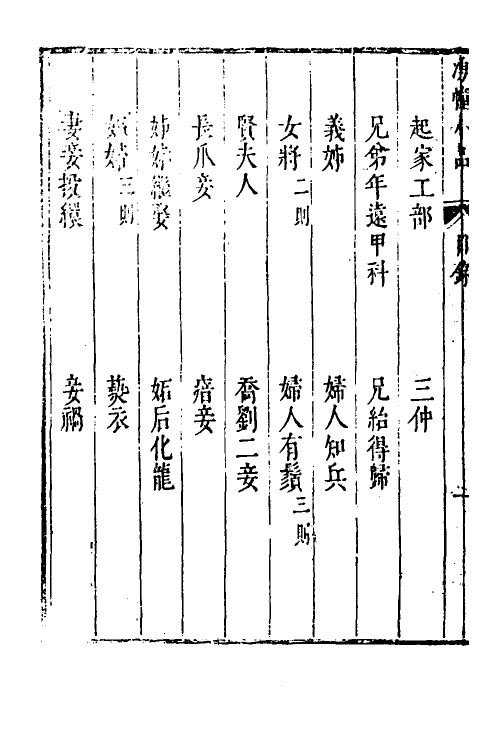 湧幢小品 目錄 二
起家工部 三仲
兄弟年遠甲科 兄紿得歸
義姊 婦人知兵
女將二則 婦人有鬚三則
賢夫人 喬劉二妾
長爪妾 瘖妾
姊妹繼娶 妬后化龍
妬婦三則 爇衣
妻妾投繯 妾禍